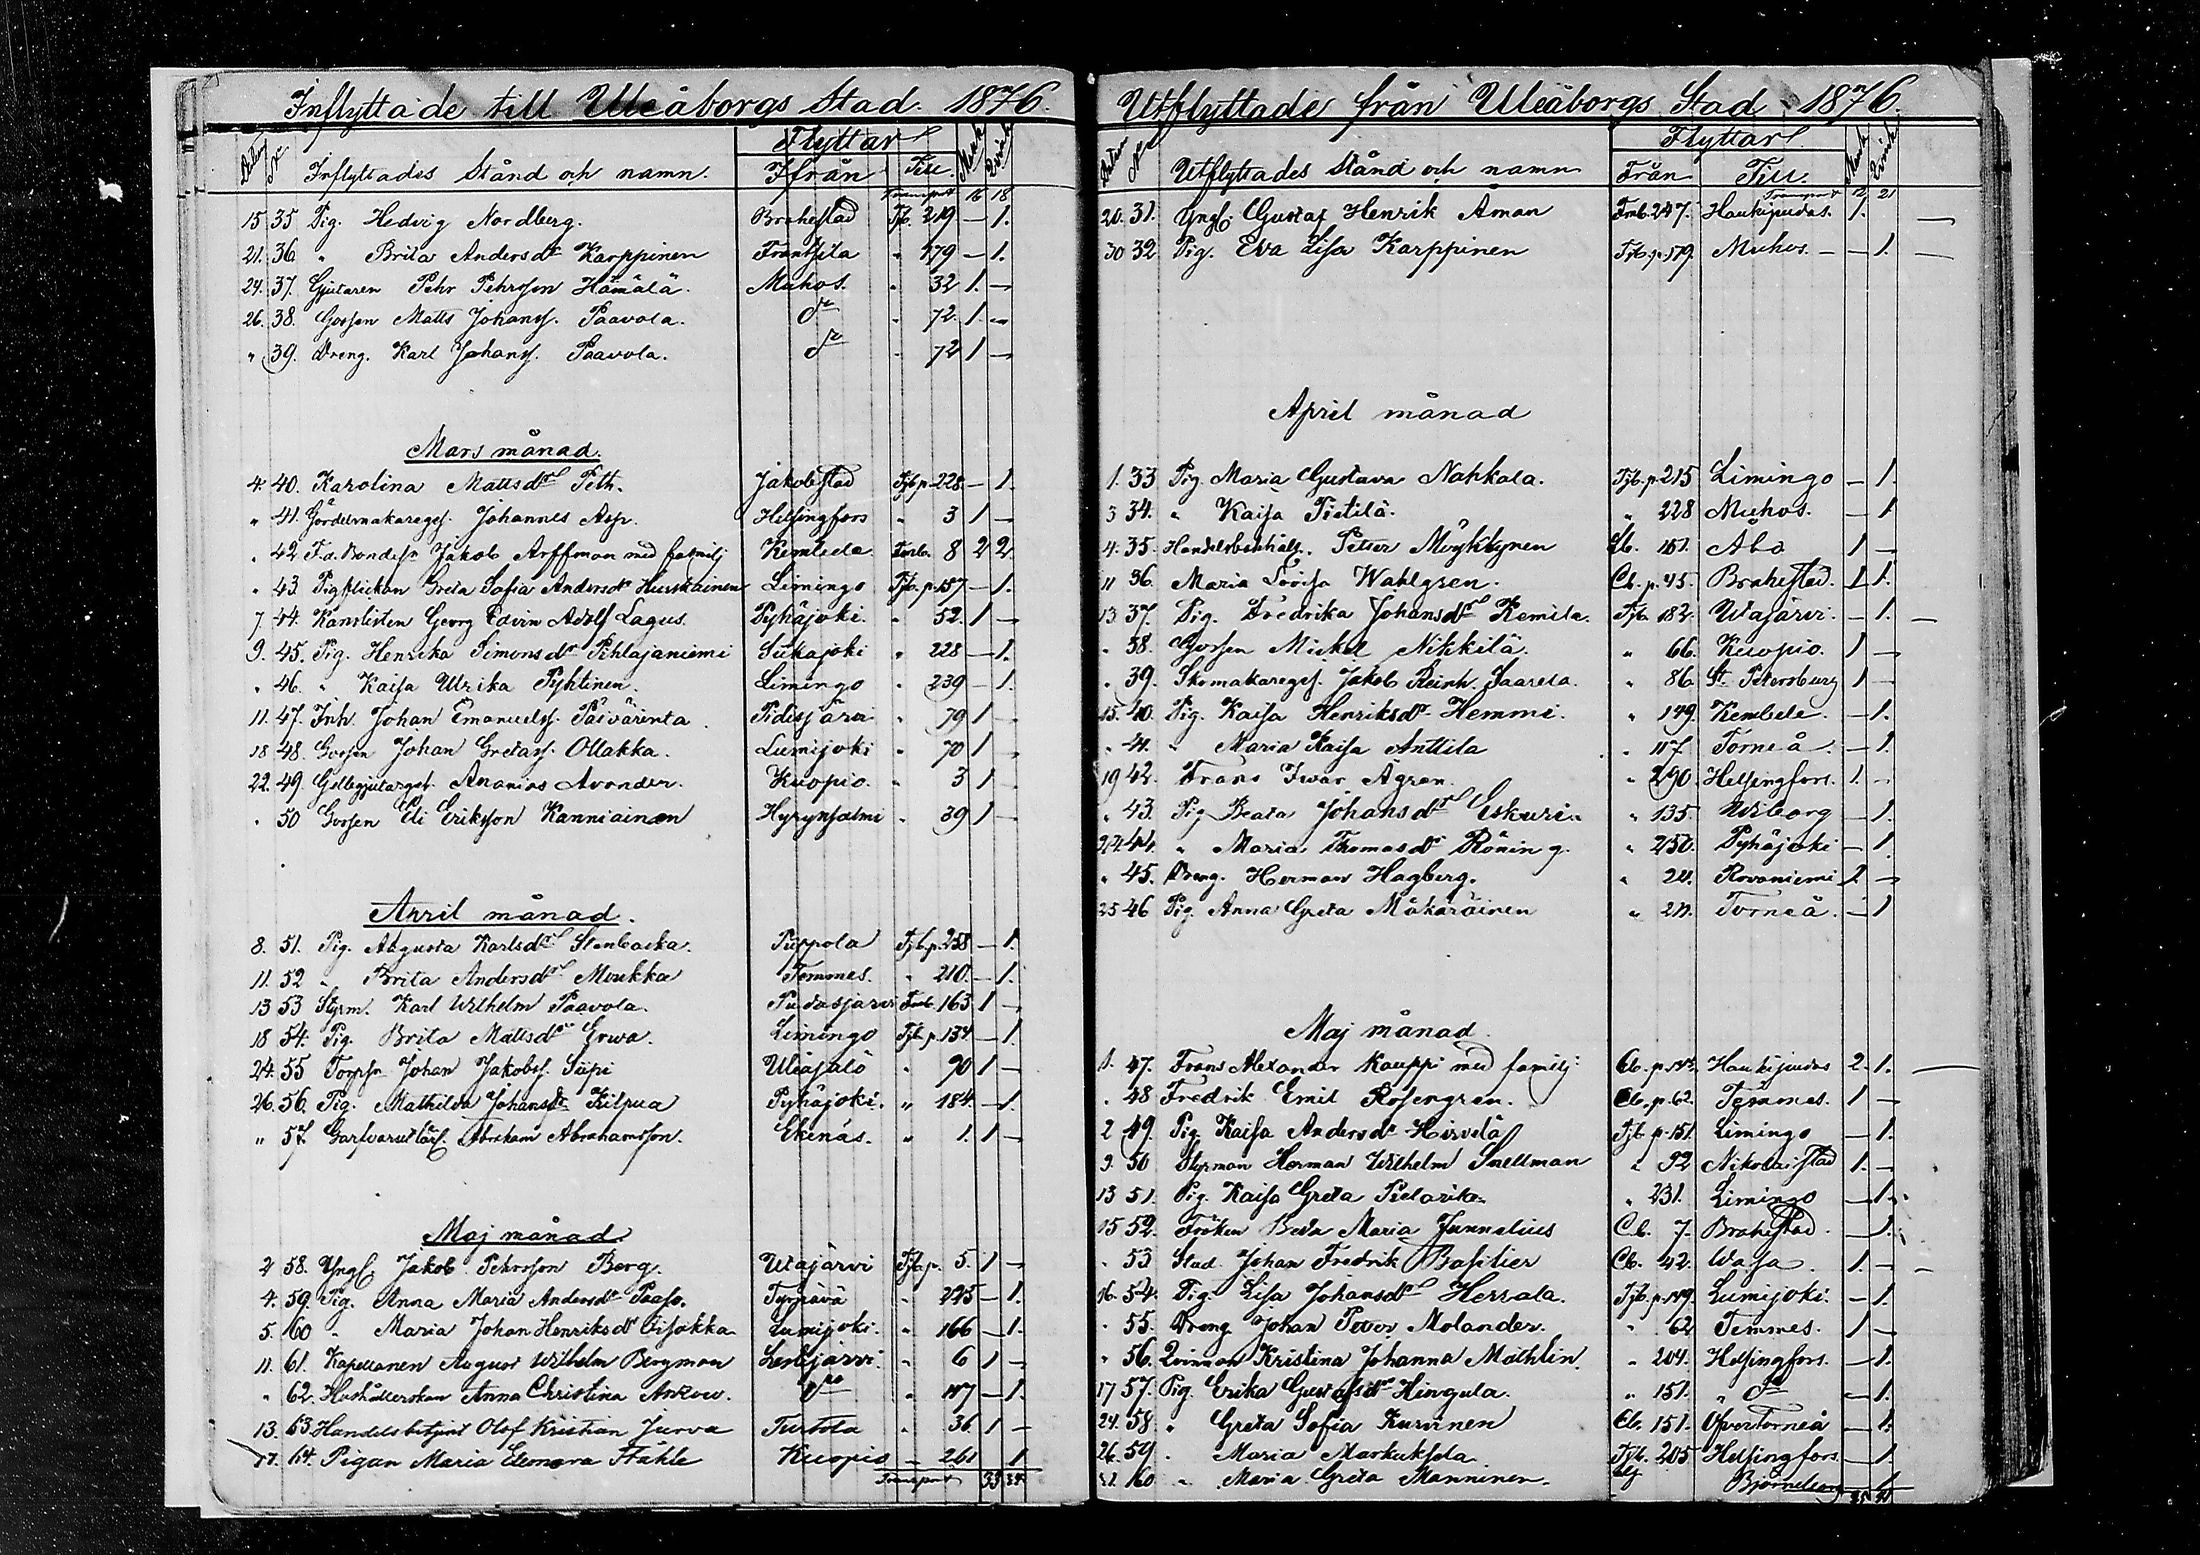 Inflyttade till Uleåborgs Stad. 1876.
Flyttar
No Inflyttades Stånd och namn. Ifrån Till Mank. Qvink.
Transport 16 18
15 35 Pig. Hedvig Nordberg. Brahestad Tjb. 219 — 1.
21. 36 " Brita Andersdr Karppinen Frantsila " 179 — 1.
24. 37. Gjutaren Pehr Pehrsson Hämälä. Muhos. " 32 1. —
26. 38. Gossen Matts Johanss. Paavola. do " 72. 1. —
" 39. Dreng. Karl Johanss. Paavola. do " 72 1 —
Mars månad.
4. 40. Karolina Mattsdr Peth. Jakobstad Tjb p. 228. — 1.
" 41. Gördelmakareges. Johannes Asp. Helsingfors " 3 1 —
" 42 F.d. Bondesn Jakob Arffman med familj Kembele Fmb. 8 2 2
" 43 Pigflickan Greta Sofia Andersdr Huskainen Limingo Tjb. p. 157 — 1.
7. 44. Kanslisten Georg Edvin Adolf Lagus. Pyhäjoki. " 52. 1 —
9. 45. Pig. Henrika Simonsdr Pihlajaniemi Siikajoki " 228 — 1.
" 46. " Kaisa Ulrika Pyhtinen. Limingo " 239 — 1.
11. 47. Inh. Johan Emanuelss. Päivärinta Pidisjärvi " 79 1 —
18 48. Gossen Johan Gretass. Ollakka. Lumijoki " 70 1 —
22. 49. Gellegjutarges. Ananias Avonder. Kuopio. " 3 1 —
" 50 Gossen Eli Eriksson Kanniainen Hyrynsalmi " 39 1 —
April månad.
8. 51. Pig. Augusta Karlsdr Stenbacka. Pippola Tjb. p. 258 — 1.
11. 52 " Brita Andersdr Moukka Temmes. " 210. — 1.
13 53 Styrm. Karl Wilhelm Paavola. Pudasjärvi Fmb. 163 1 —
18 54. Pig. Brita Mattsdr Erwa. Limingo Tjb. p. 134 — 1.
24. 55 Torpsn Johan Jakobss. Siipi Uleåsalo " 90 1 —
26. 56. Pig. Mathilda Johansdr Kilpua Pyhäjoki. " 184. — 1.
" 57. Garfvarelärl. Abraham Abrahamsson. Ekenäs. " 1. 1 —
Maj månad
2 58. Yngl. Jakob Pehrsson Berg. Utajärvi Tjb p. 5. 1 —
4. 59. Pig. Anna Maria Andersdr Paaso. Tyrnävä " 225 — 1.
5. 60 " Maria Johan Henriksdr Lisakka Lumijoki. " 166 — 1.
11. 61. Kapellanen August Wilhelm Bergman Lestijärvi " 6 1 —
" 62. Hushållerskan Anna Christina do " 117 — 1.
13. 63. Handelsbetjent Olof Kristian Jurva Turtola " 36. 1 —
17. 64. Pigan Maria Eleonora Ståhle Kuopio " 261 1
Transport 33 34
Utflyttade från Uleåborgs Stad 1876.
Flyttar
No Utflyttades Stånd och namn Från Till. Mank. Qvink.
Transport 12 21
20. 31. Yngl. Gustaf Henrik Åman Fmb. 247. Haukipudas. 1. —
30 32 Pig. Eva Lisa Karppinen Tjb. p. 179. Muhos. — 1. —
April månad
1. 33 Pig. Maria Gustava Nahkala. Tjb. p. 215 Limingo — 1.
3 34. " Kaisa Pietilä. " 228 Muhos. — 1
4. 35. Petter Möykkynen Lb. 151. Åbo 1 —
11 36. Maria Lovisa Wahlgren. Cb. p. 45. Brahestad. 1 1.
13 37. Pig. Fredrika Johansdr Kemila. Tjb. 182. Utajärvi. — 1. —
" 38. Gossen Mickel Nikkilä. " 66. Kuopio. 1 —
" 39. Skomakareges. Jakob Reinh. Saarela. " 86. St. Petersburg 1 —
15. 40. Pig. Kaisa Henriksdr Hemmi. " 149. Kembele. — 1.
" 41. " Maria Kaisa Anttila " 117. Torneå. — 1.
19 42. Frans Iwar Ågren. " 290. Helsingfors. 1. —
" 43. Pig. Beata Johansdr Eskuri. " 135. Wiborg — 1.
24. 44. " Maria Thomasdr Röning. " 250. Pyhäjoki — 1.
" 45. Dreng. Herman Hagberg. " 24. Rovaniemi 1 —
25 46 Pig. Anna Greta Määkäräinen " 211. Torneå. — 1
Maj månad.
1. 47. Frans Alexander Kauppi med familj. Cb. p. Haukipudas 2. 1. —
" 48 Fredrik Emil Rosengren. Cb. p. 62. Temmes. 1 —
2 49. Pig. Kaisa Andersdr Hirvelä Tjb. p. 151. Limingo — 1.
9. 50 Styrman Herman Wilhelm Snellman " 92 Nikolaistad 1. —
13 51. Pig. Kaisa Greta Pielarika. " 231. Limingo — 1.
15 52. Fröken Beda Maria Junnelius Cb. 7. Brahestad. — 1.
" 53 Stud. Johan Fredrik Basilier Cb. 42. Wasa. 1. — —
16. 54. Pig. Lisa Johansdr Herrala. Tjb. p. 149. Lumijoki. — 1.
" 55. Dreng Johan Petter Molander. " 62 Temmes. 1 —
" 56. Qvinnan Kristina Johanna Mathlin. " 204. Helsingfors. — 1.
17 57. Pig. Erika Gustafsdr Hingula. " 151. " do — 1.
24. 58. " Greta Sofia Kurvinen Cb. 151. Öfvertorneå — 1.
26. 59. " Maria Markuksela Tjb. 205 Helsingfors. — 1
31. 60 " Maria Greta Manninen. Björneborg 1